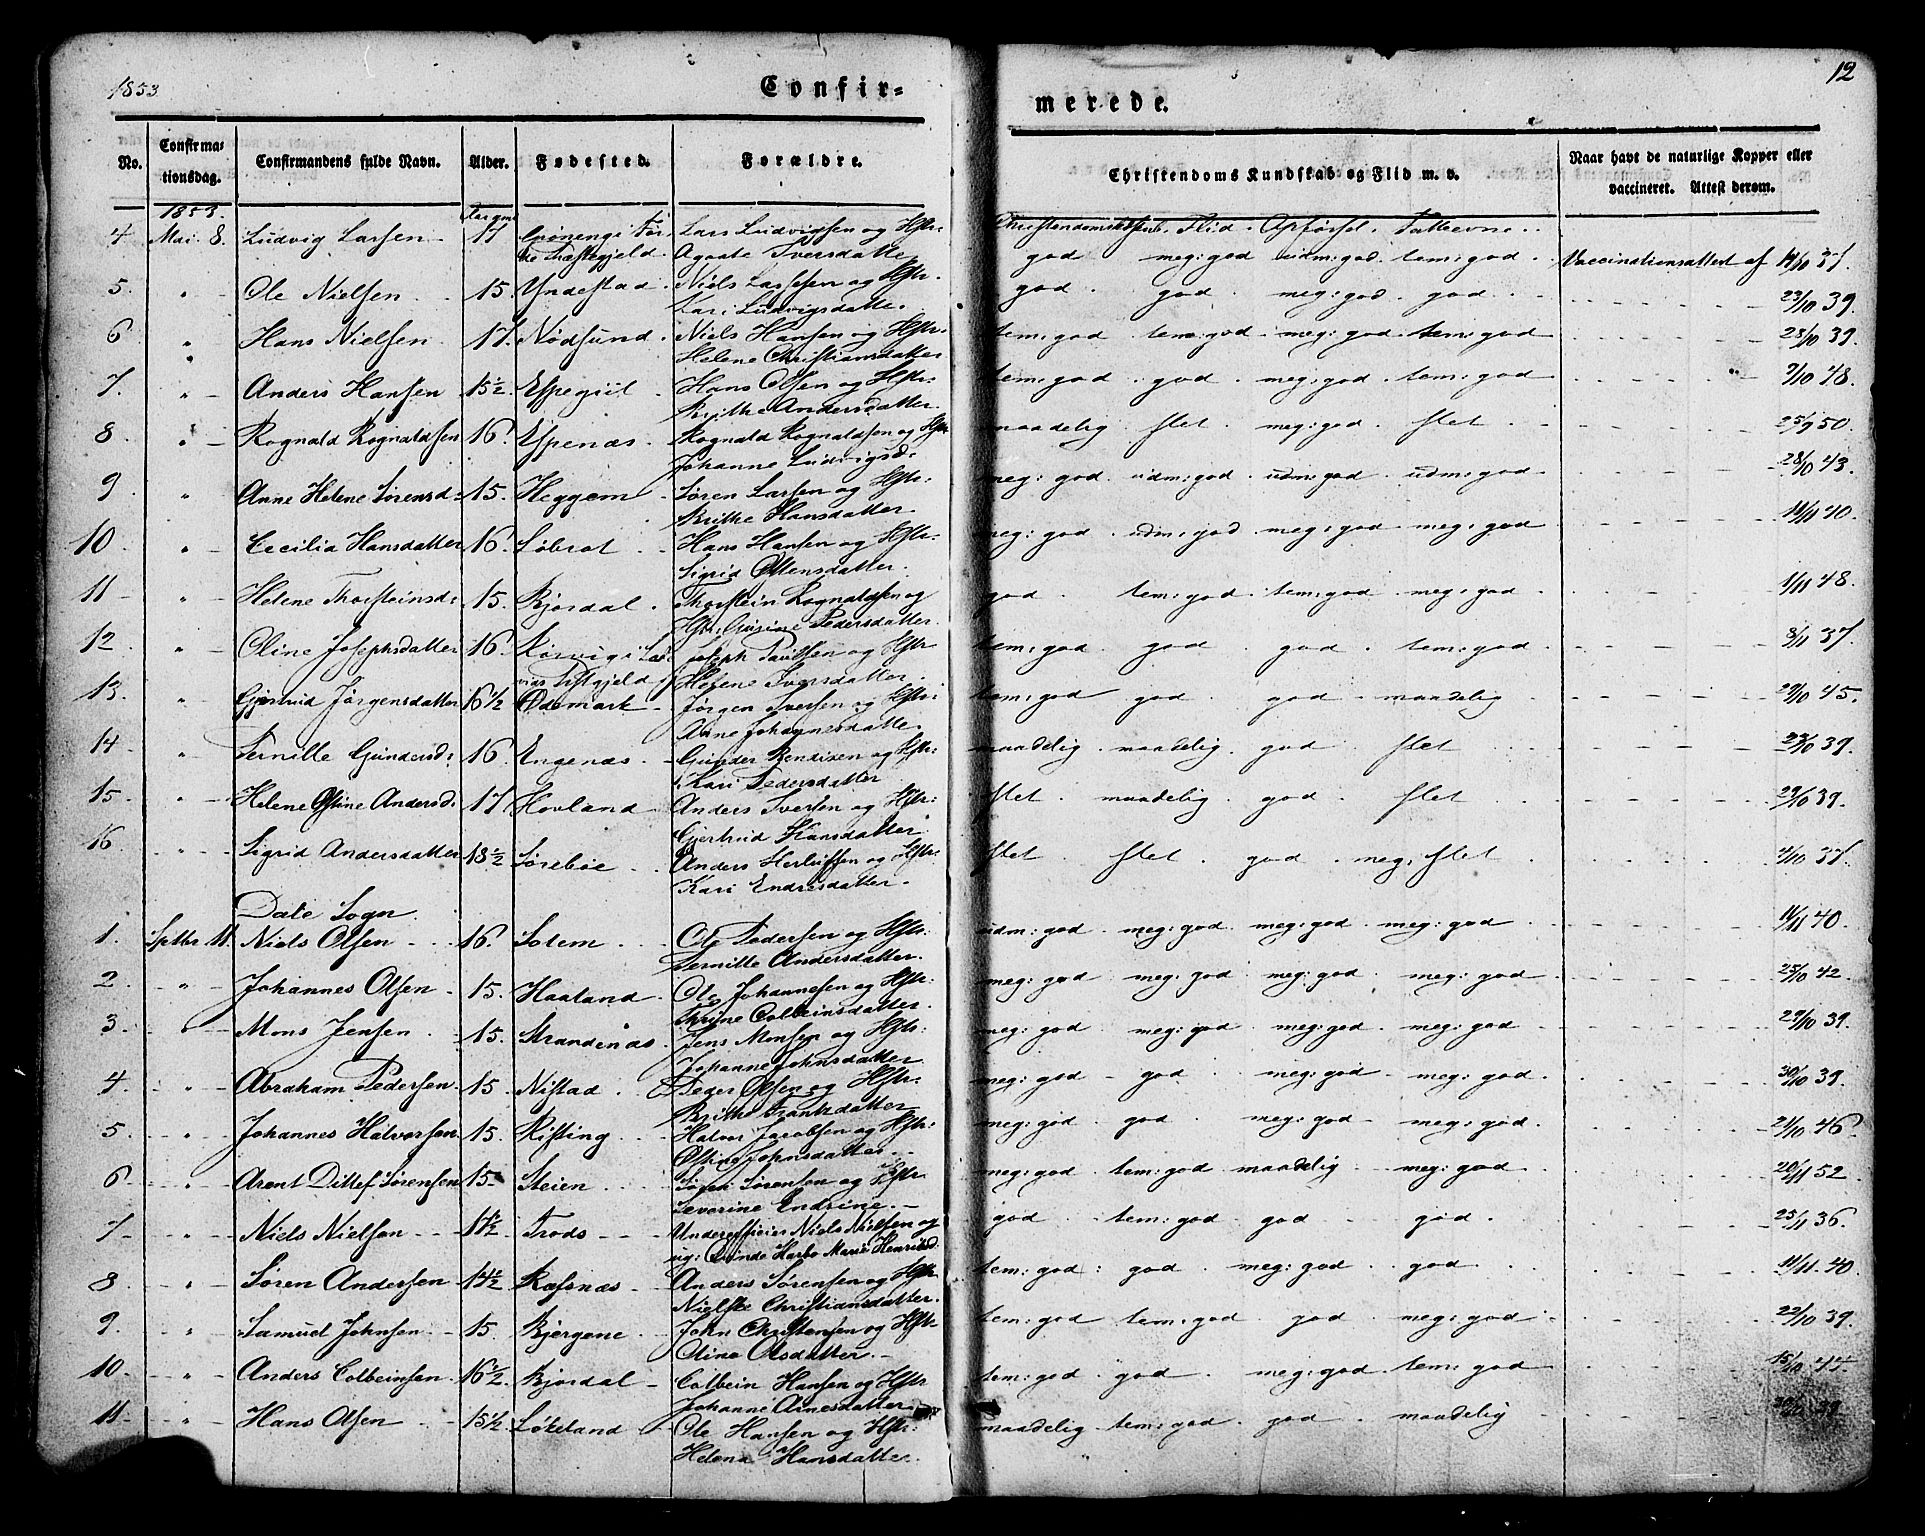 1853
Confir-
merede.
12
No.
Confirma-
tionsdag.
Confirmandens fulde Navn.
Alder.
Fødested.
Forældre.
Christendoms Kundskab og Flid m. v.
Naar havt de naturlige Kopper eller
vaccineret. Attest derom.
1853.
Christendomskdskb. Flid. Opførsel.
4 Mai. 8. Ludvig Larsen 17 Lars Ludvigsen og Hstr:
Præstegjeld. Agaate Iversdatter god meg: god udm: god. tem: god. Vaccinationsattest af 14/10 37.
5. " Ole Nielsen 15. Yndestad. Niels Larsen og Hstr.
Kari Ludvigsdatter. god god meg: god. god 23/10 39.
6 " Hans Nielsen 17. Nødsund. Niels Hansen og Hstr.
Helene Christiansdatter tem: god tem: god meg: god tem: god 23/10 39.
7. " Anders Hansen 15½. Espegiil Hans Olsen og Hstr:
Brithe Andersdatter. tem: god god. meg: god. tem: god 9/10 48.
8 " Rognald Rognaldsen 16. Espenæs. Rognald Rognaldsen og Hstr
Johanne Ludvigsd: maadelig slet meg: god slet 25/9 50.
9 " Anne Helene Sørensd: 15. Heggem Søren Larsen og Hstr:
Brithe Hansdatter. meg: god udm: god udm: god udm: god 28/10 43.
10 " Cecilia Hansdatter 16. Løbrot Hans Hansen og Hstr.
Sigrid Ottensdatter. meg: god udm: god meg: god meg: god 14/11 40.
11 " Helene Thorsteinsd: 15. Bjordal. Thorstein Rognaldsen og
Hstr: Gurine Pedersdatter. god tem: god tem: god meg: god 1/11 48.
12 " Oline Josephsdatter 16. Joseph og Hstr
Helene Iversdatter. tem: god god god tem: god 8/11 37.
13. " Gjertrud Jørgensdatter 16½ Ødemark Jørgen Iversen og Hstr:
Anne Johannesdatter tem: god god god maadelig 29/10 45.
14 " Pernille Gundersd: 16. Engenæs. Gunder Bendixen og Hstr:
Kari Pedersdatter maadelig maadelig god slet 23/10 39.
15. " Helene Ostine Andersd. 17 Hovland Anders Iversen og Hstr:
Gjertrud Hansdatter slet maadelig god slet 29/10 39.
16 " Sigrid Andersdatter 18½ Sørebøe Anders Herlufsen og Hstr.
Kari Endresdatter. slet slet god meg: slet 4/10 37.
Dale Sogn.
1. Sptbr 11. Niels Olsen 16. Solem Ole Pedersen og Hstr.
Pernille Andersdatter. udm: god meg: god meg: god meg: god 14/11 40
2 " Johannes Olsen 15. Haaland Ole Johannesen og Hstr:
Thrine Colbeinsdatter. meg: god meg: god meg: god meg: god 25/10 42
3. " Mons Jensen 15. Strandenæs. Jens Monsen og Hstr:
Johanne Johnsdatter. meg: god meg: god meg: god meg: god 29/10 39.
4 " Abraham Pedersen 15 Nistad Peder Olsen og Hstr.
Brithe Frantzdatter meg: god god meg: god meg: god 30/10 39.
5 " Johannes Halvorsen 15. Rifting Halvor Jacobsen og Hstr:
Ostine Johnsdatter. meg: god god meg: god meg: god. 21/10 46
6 " Arent Ditlef Sørensen 15 Steien Søren Sørensen og Hstr
Severine Endrine. meg: god tem: god maadelig meg: god 20/11 52
7 " Niels Nielsen 17½ Frods Underofficier Niels Nielsen og
ug: Qvinde Harbo Marie Henriksd. god tem: god god god 25/11 36.
8 " Søren Andersen 14½ Ræfsnæs Anders Sørensen og Hstr
Nielske Christiansdatter. tem: god god meg: god god 14/11 40.
9. " Samuel Johnsen 15. Bjergene John Christensen og Hstr
Oline Olsdatter. tem: god tem: god god meg: god 22/10 39.
10. " Anders Colbeinsen 16½. Bjordal Colbein Hansen og Hstr
Johanne Arnesdatter tem: god god meg: god tem: god 15/10 44.
11 " Hans Olsen 15½. Løkeland Ole Hansen og Hstr:
Helene Hansdatter. maadelig tem: god god maadelig 39.